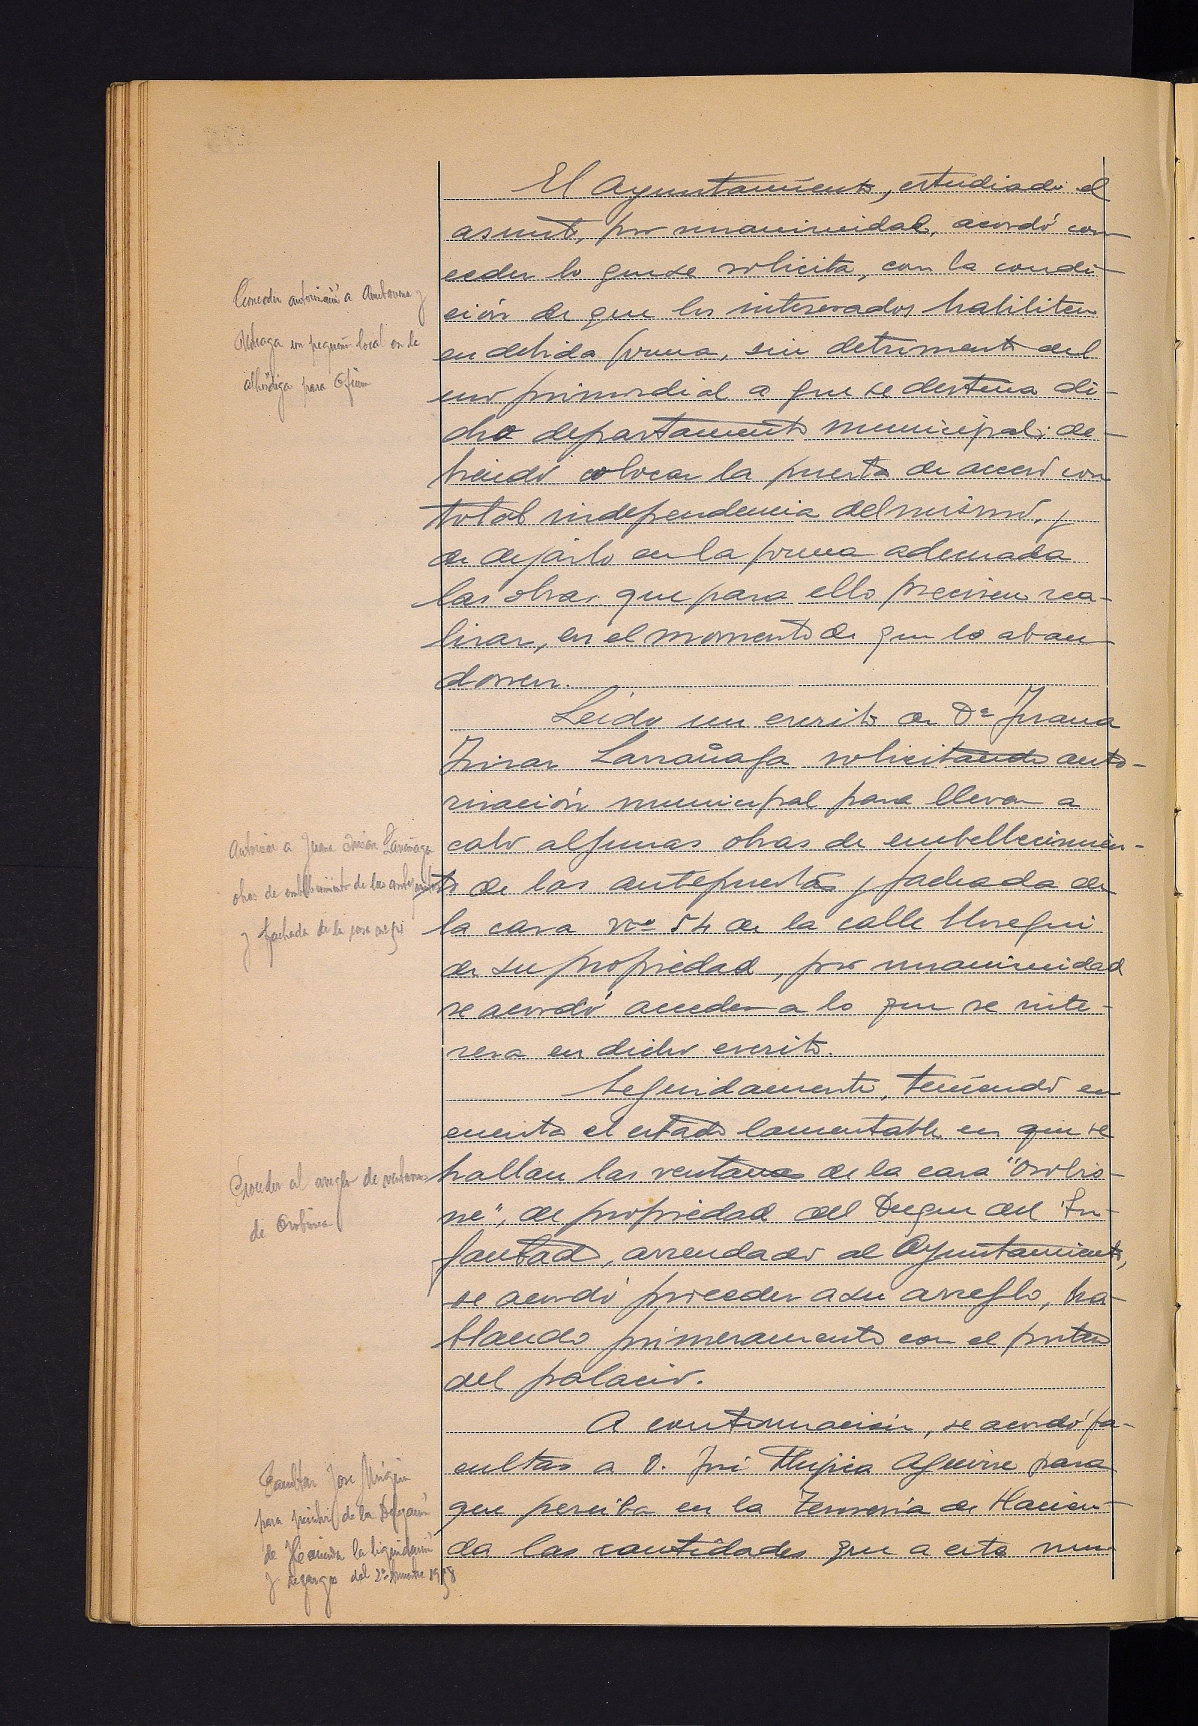 El Ayuntamiento, estudiado el
asunto, por unanimidad, acordó con
ceder lo que se solicita, con la condi-
ción de que los interesados habiliten
en debida forma, sin detrimento del
uso primordial a que se destina di-
cho departamento municipal; de-
biendo colocar la puerta de acceso con
total independencia del mismo, y
de dejarlo en la forma adecuada
las obras que para ello precisen rea-
lizar, en el momento de que lo aban
donen.
Concder autorización a y
un pequeño local en la
alhóndiga para
Leido un escrito de Dª Juana
Larrañaga solicitando auto-
rización municipal para llevar a
cabo algunas obras de embellecimien-
to de las antepuertas y fachada de
la casa nº 54 de la calle
de su propiedad, por unanimidad
se acordó acceder a lo que se inte-
resa en dicho escrito.
Autorizar a Juana Larrañaga
obras de embellecimiento de las antepuertas
y fachada de la casa
Seguidamente, teniendo en
cuenta el estado lamentable en que se
hallan las ventanas de la casa "Osobio-
ne", de propiedad del Duque del In-
fantado, arrendado al Ayuntamiento,
se acordó proceder a su arreglo, ha-
blando primeramente con el
del palacio.
Proceder al arreglo de ventanas
de
A continuación, se acordó fa-
cultar a D. José Mujica Aguirre para
que perciba en la Tesorería de Hacien-
da las cantidades que a este mu-
Facultar José Mujica
para percibir de la Delegación
de Hacienda la liquidación
y recargos del 2º 1958